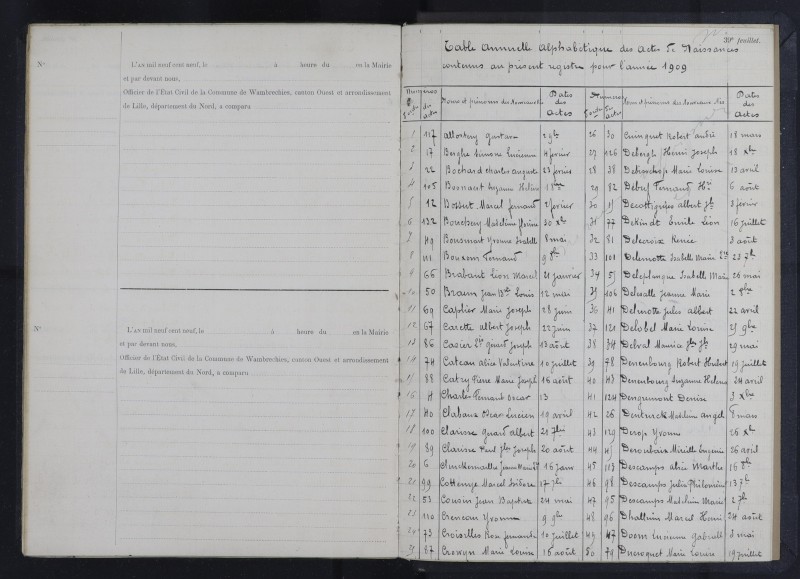 N°
L'AN mil neuf cent neuf, le à heure du en la Mairie
et par devant nous,
Officier de l'État Civil de la Commune de Wambrechies, canton Ouest et arrondissement
de Lille, département du Nord, a comparu
N°
L'AN mil neuf cent neuf, le à heure du en la Mairie
et par devant nous,
Officier de l'État Civil de la Commune de Wambrechies, canton Ouest et arrondissement
de Lille, département du Nord, a comparu
30e feuillet.
Table Annuelle Alphabétique des Actes de Naissances
contenus au présent registre pour l'année 1909
Numéros Noms et prénoms des Nouveaux-nés Dates des Actes
1 117 Gustave
2 17 Berghe Simone Lucienne 4 février
3 22 Bochard Charles auguste 23 février
4 105 Bonnart Suzanne
5 12 Bossut Marcel fernand 2 février
6 132 Madeleine 30 Xbre
7 49 Bonsmart Yvonne Isabelle 8 mai
8 111 Fernand 9 8bre
9 66 Brabant Léon Marcel 21 janvier
10 50 Braem Jean Bte Louis 12 mai
11 69 Caplier Marie Joseph 28 juin
12 67 Carette albert Joseph 22 juin
13 86 Casier Joseph 13 août
14 74 Cateau Alice Valentine 10 juillet
15 88 Catry Pierre Marie Joseph 16 août
16 Charles Fernand oscar 13
17 40 Clabaux Oscar Lucien 19 avril
18 100 Clarisse albert 21 7bre
19 89 Clarisse Paul Joseph 20 août
20 6 16 janv
21 99 Cottenye Marcel Isidore 17 7bre
22 53 Cousin Jean Baptiste 24 mai
23 110 Yvonne 9 9bre
24 73 Croiselles Rose fernande 10 juillet
25 87 Crowyn Marie Louise 16 août
Numéros Noms et prénoms des Nouveaux-Nés Dates des Actes
26 30 Cuinquet Robert andré 18 mars
27 126 Debergh Henri Joseph 18 Xbre
28 38 Debisschop Marie Louise 13 avril
29 82 Fernand 6 août
30 15 Decottignies albert 3 février
31 77 Dekindt Emile Léon 16 juillet
32 81 Delecroix Renée 3 août
33 101 Delemotte Isabelle Marie 23 7bre
34 51 Deleplanque Isabelle Marie 26 mai
35 106 Delesalle Jeanne Marie 2 8bre
36 41 Delmotte Jules albert 22 avril
37 121 Delobel Marie Louise 25 9bre
38 54 Delval 29 mai
39 78 Denenbourg Robert Hubert 19 juillet
40 43 Denenbourg Suzanne Helene 24 avril
41 124 Dengremont Denise 3 Xbre
42 26 Denturck Madeleine angel 8 mars
43 129 Yvonne 26 Xbre
44 45 Deroubaix Mireille Eugénie 26 avril
45 113 Descamps alice Marthe 16 8bre
46 98 Descamps Julia Philomène 13 7bre
47 95 Descamps Madeleine Marie 2 7bre
48 96 Dhalluin Marcel Henri 24 août
49 47 Doom Lucienne Gabrielle 3 mai
50 79 Ducroquet Marie Louise 19 juillet